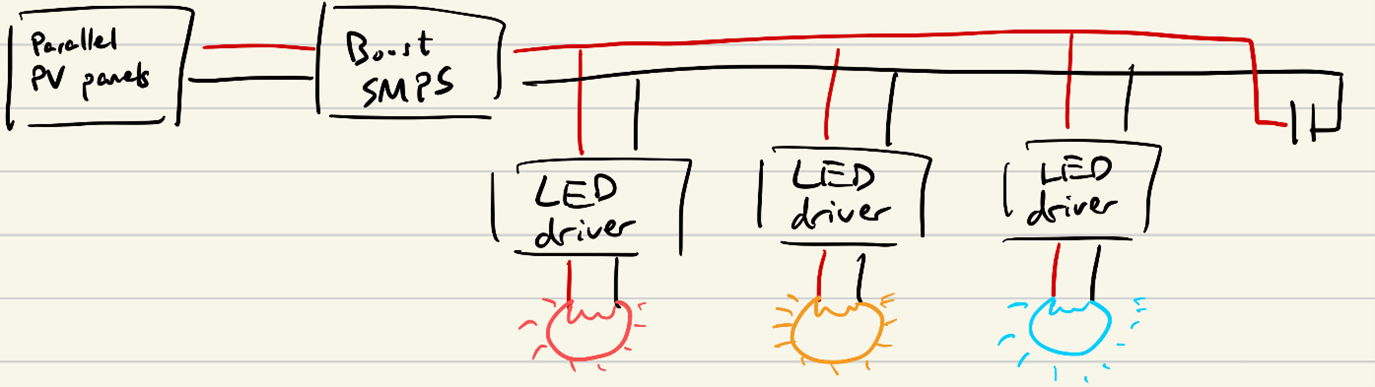 Parallel
PV panels
Boost
SMPS
LED
driver
LED
driver
LED
driver